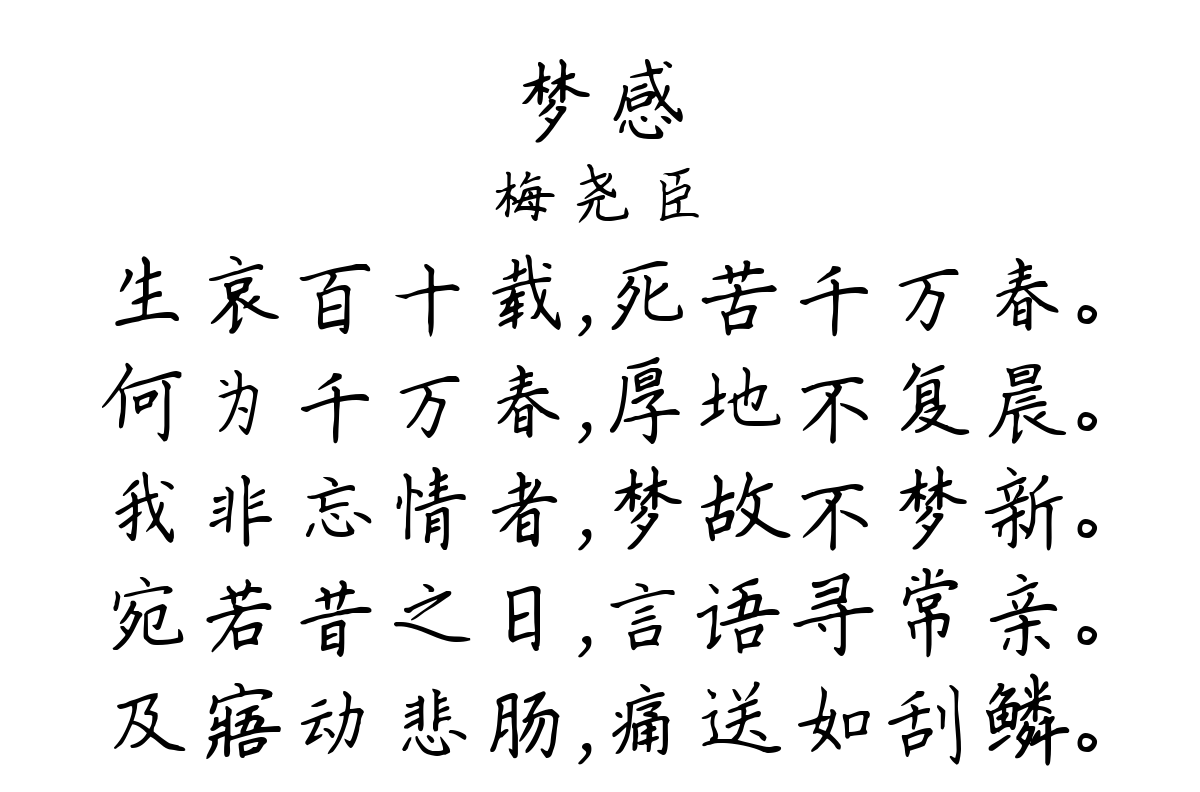 梦感
梅尧臣
生哀百十载,死苦千万春。
何为千万春,厚地不复晨。
我非忘情者,梦故不梦新。
宛若昔之日,言语寻常亲。
及寤动悲肠,痛送如刮鳞。